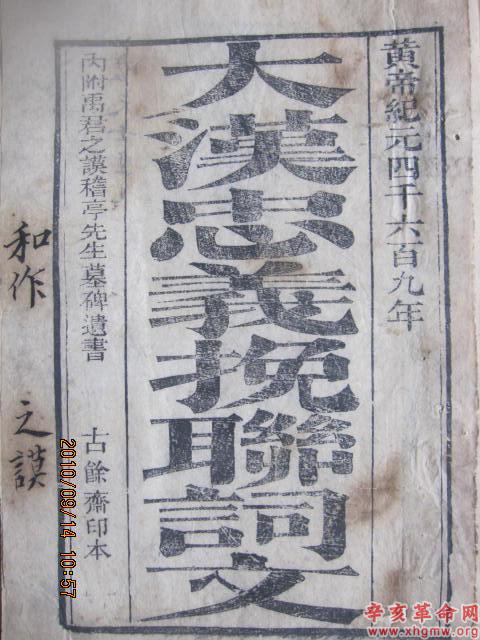 黄帝紀元四千六百九年
大漢忠義挽聯詞文
內附禹君之謨稽亭先生墓碑遺書
古餘齋印本
和作 之謨
2010/09/14 10:57
辛亥革命网
www.xhgmw.org